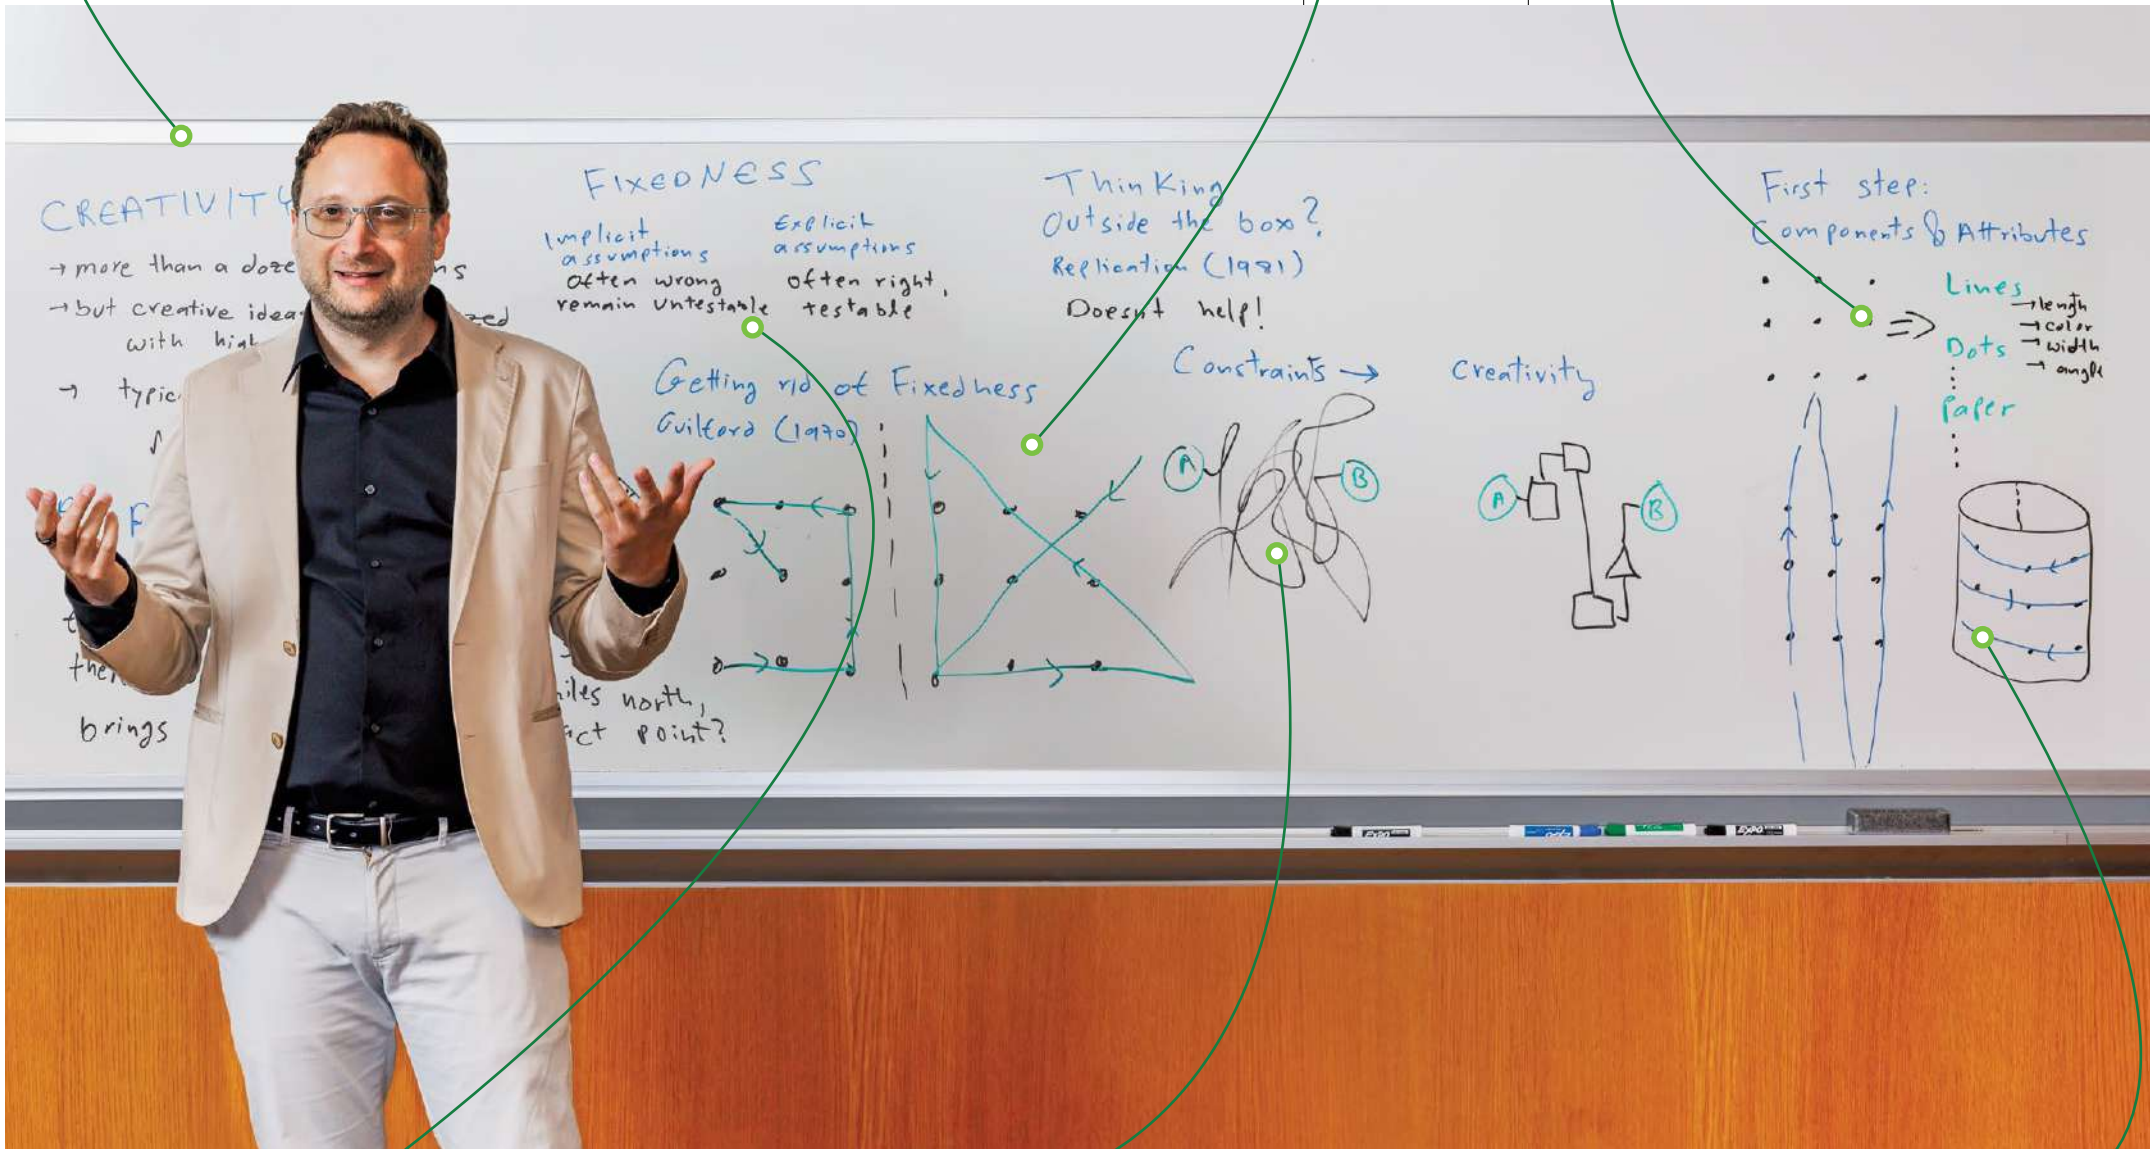 CREATIVITY
→ more than a
→ but creative
with
→
the
brings
FIXEDNESS
Implicit
assumptions
often wrong
remain untestable
Explicit
assumptions
often right,
testable
Getting rid of Fixedness
Guilford (1970)
north,
point?
Thinking
Outside the box?
Replication (1981)
Doesn't help!
Constraints → Creativity
A
B
A
B
First step:
Components & Attributes
Lines
→ length
→ color
→ width
→ angle
Dots
Paper
EXPO
EXPO